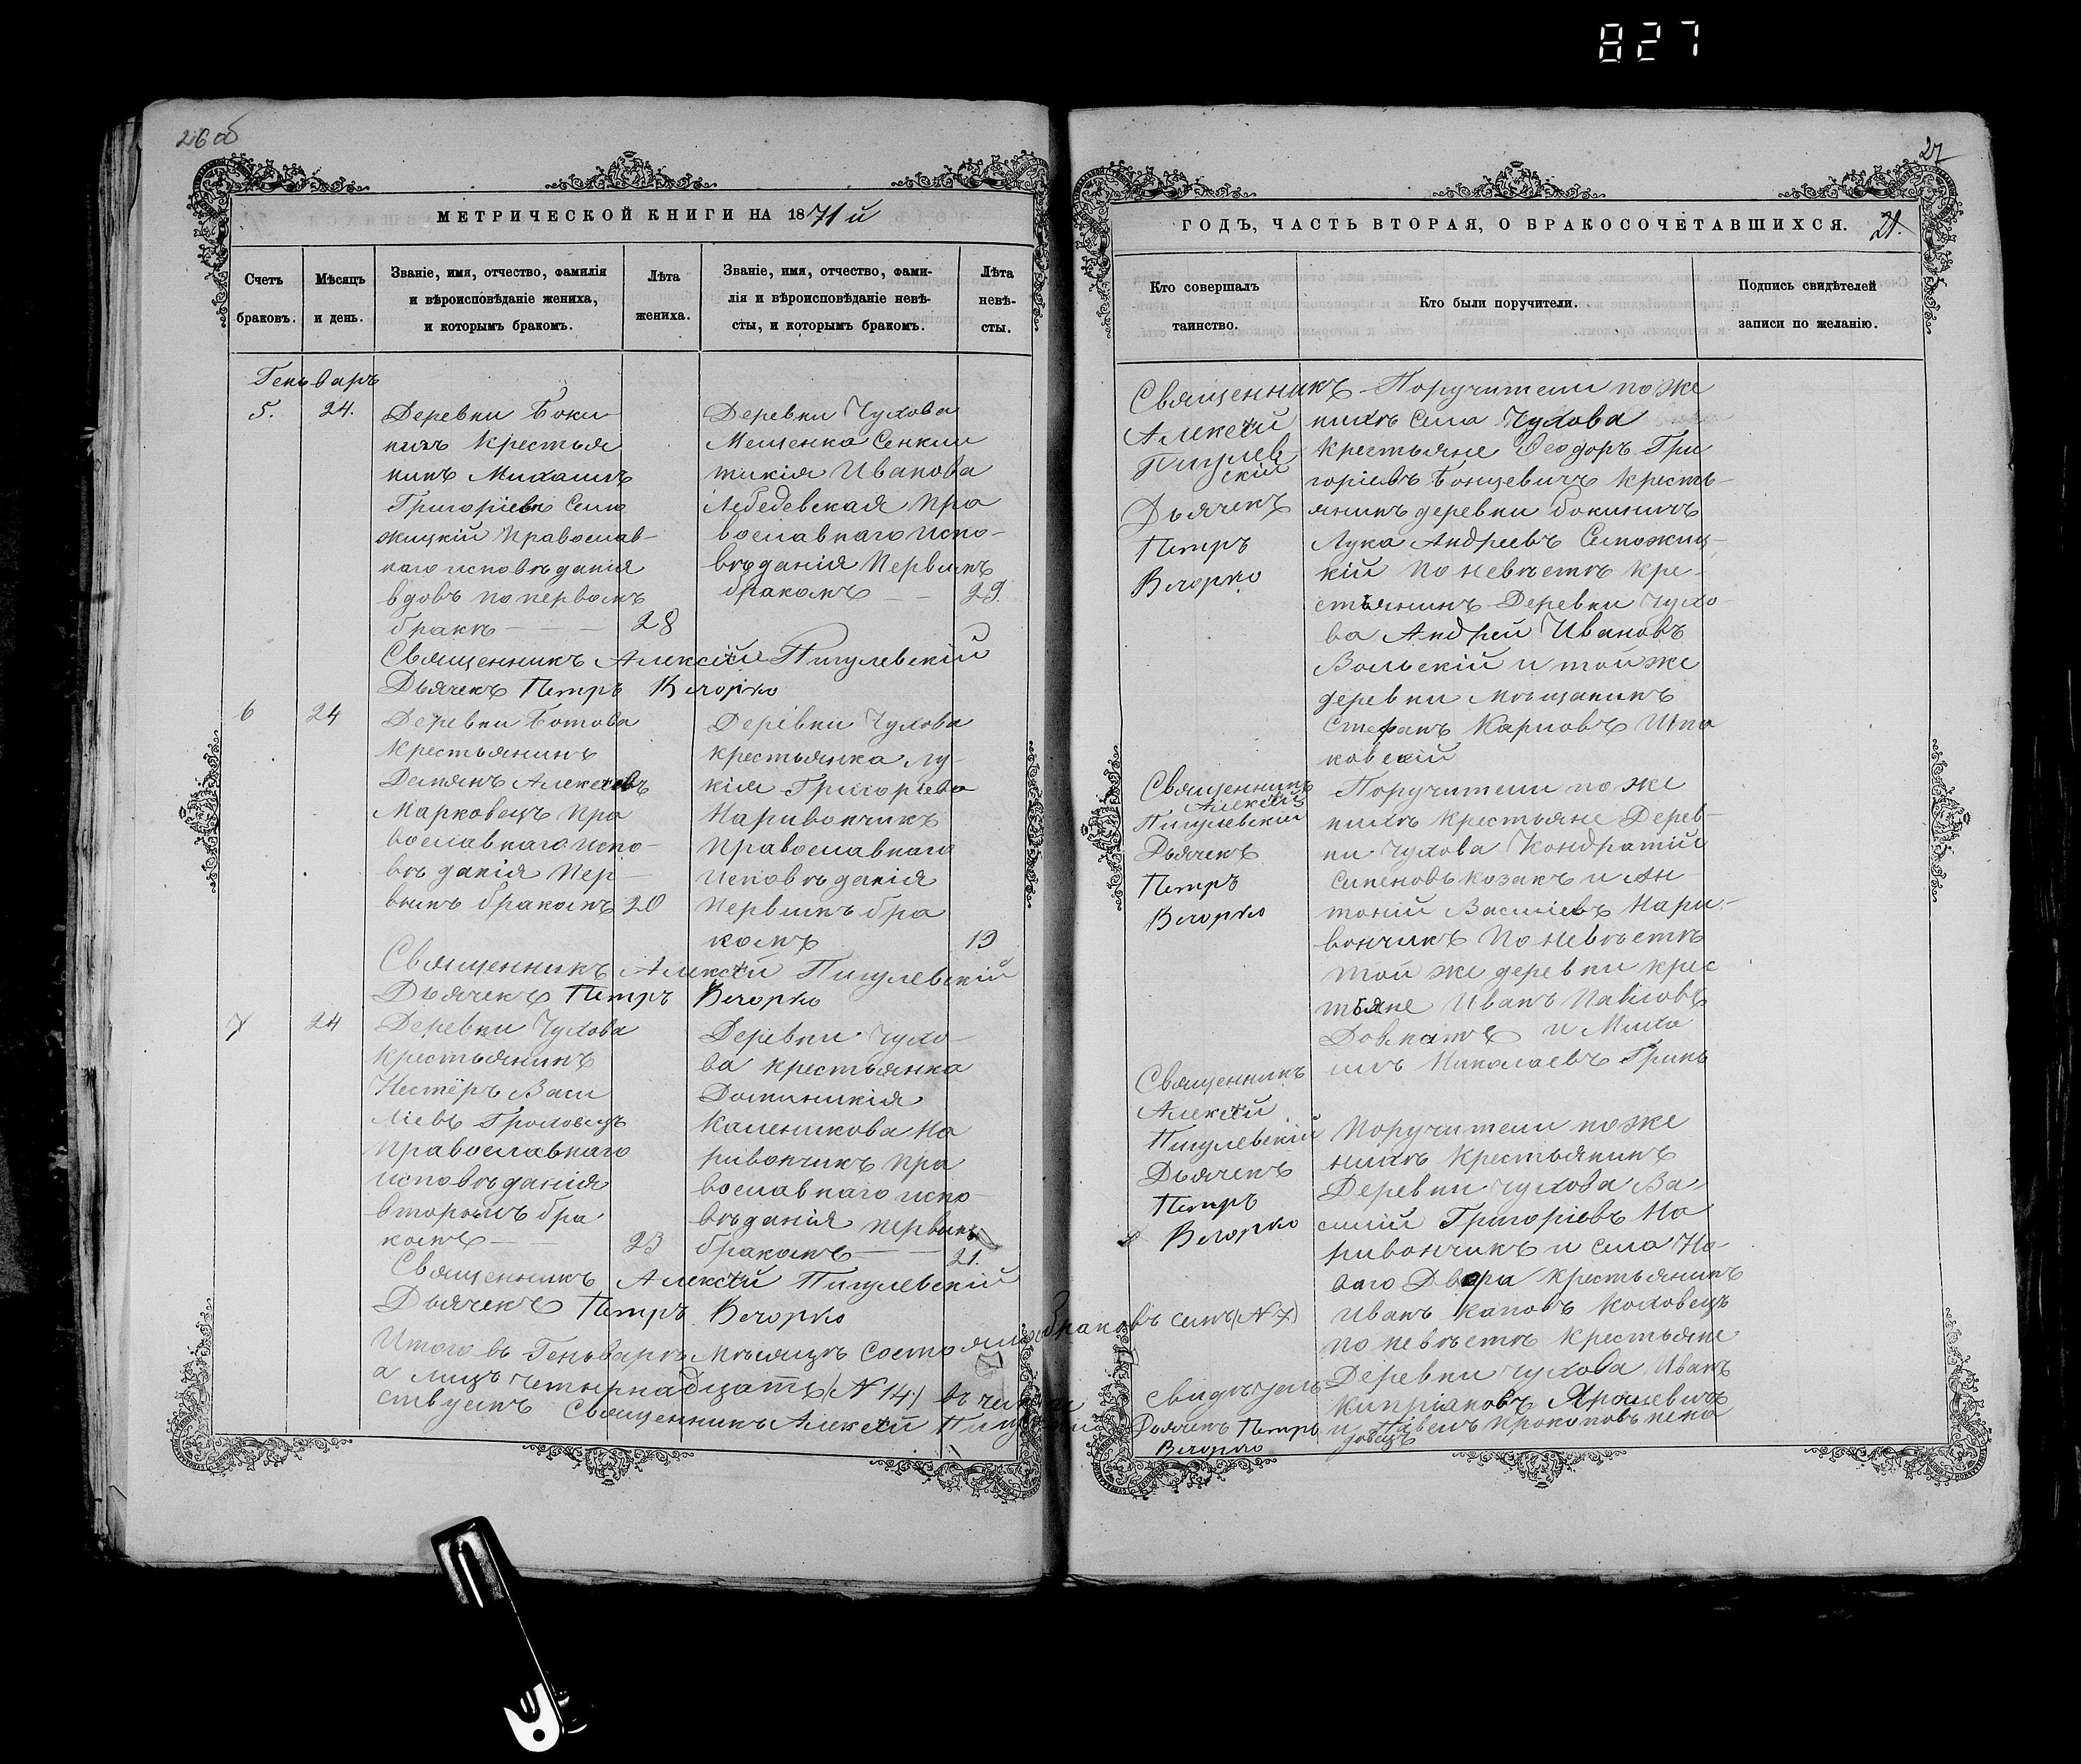 827
26 об
МЕТРИЧЕСКОЙ КНИГИ НА 1871 й
Счетъ браковъ.
Мѣсяцъ и день.
Званіе, имя, отчество, фамилія и вѣроисповѣданіе жениха, и которымъ бракомъ.
Лѣта жениха.
Званіе, имя, отчество, фамилія и вѣроисповѣданіе невѣсты, и которымъ бракомъ.
Лѣта невѣсты.
Геньваръ
5.
24.
Деревни Боки
ничъ Крестья
нинъ Михаилъ
Григоріевъ Само
жицкій Православ-
наго исповѣданія
вдовъ по первомъ
бракѣ
28
Деревни Чухова
Мещенка Сенкли
тикія Иванова
Лебедевская Пра
вославнаго испо-
вѣданія Первымъ
бракомъ
29.
Священникъ Алексѣй Пигулевскій
Дьячекъ Петръ Вечорко
6
24
Деревни Ботова
Крестьянинъ
Демянъ Алексѣевъ
Марковецъ Пра
вославнаго испо-
вѣданія Пер-
вымъ бракомъ
20
Деревни Чухова
крестьянка Лу-
кія Григорьева
Наривончикъ
Православнаго
исповѣданія
Первымъ бра
комъ
19
Священникъ Алексѣй Пигулевскій
Дьячекъ Петръ Вечорко
7
24
Деревни Чухова
Крестьянинъ
Нестеръ Васи
ліевъ Громовецъ
Православнаго
исповѣданія
вторымъ бра
комъ
23
Деревни Чухо-
ва крестьянка
Доминикія
Каленикова На
ривончикъ Пра
вославнаго испо-
вѣданія первымъ
бракомъ
21.
Священникъ Алексѣй Пигулевскій
Дьячекъ Петръ Вечорко
Итого въ Геньварѣ мѣсяцѣ состоялось браковъ семь (№ 7)
а лицъ четырнадцать (№ 14)
ствуетъ Священникъ Алексѣй Пигулевскій
27
ГОДЪ, ЧАСТЬ ВТОРАЯ, О БРАКОСОЧЕТАВШИХСЯ.
21.
Кто совершалъ таинство.
Кто были поручители.
Подпись свидѣтелей записи по желанію.
Священникъ
Алексѣй
Пигулев
скій
Дьячекъ
Петръ
Вечорко
Поручители по же
нихѣ Села Чухова
Крестьяне Ѳеодоръ Гри
горіевъ Бонцевичъ Кресть-
янинъ деревни Бокиничъ
Лука Андреевъ Саможиц-
кій По невѣстѣ Кре-
стьянинъ Деревни Чухо
ва Андрей Ивановъ
Вольскій и той же
деревни мѣщанинъ
Стефанъ Карповъ Шпа
ковскій
Священникъ
Алексѣй
Пигулевскій
Дьячекъ
Петръ
Вечорко
Поручители по же
нихѣ Крестьяне Дерев-
ни Чухова Кондратій
Семеновъ Козакъ и Ан
тоній Василіевъ Нари-
вончикъ По невѣстѣ
той же деревни крес
тьяне Иванъ Павловъ
Довнатъ и Миха
илъ Николаевъ Гринь
Священникъ
Алексѣй
Пигулевскій
Дьячекъ
Петръ
Вечорко
Поручители по же
нихѣ Крестьянинъ
Деревни Чухова Ва
силій Григоріевъ На
ривончикъ и села Но-
ваго Двора Крестьянинъ
Иванъ Каповъ Коховецъ
По невѣстѣ Крестьяне
Деревни Чухова Иванъ
Кипріановъ Ярошевичъ
и Павелъ Прокоповъ
Свидѣтель
Дьячекъ Петръ
Вечорко